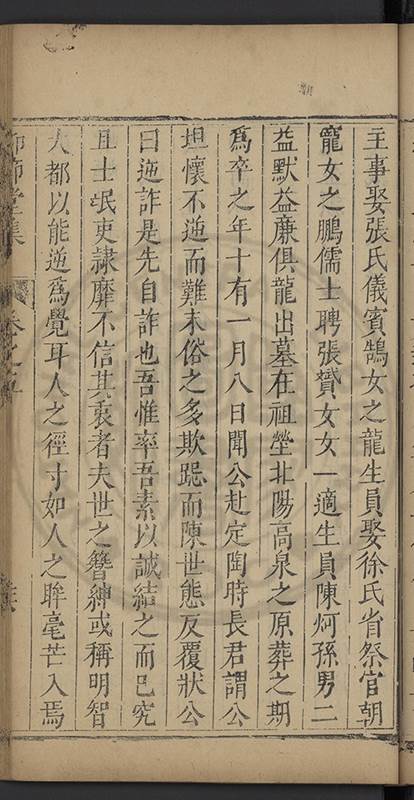 主事娶張氏儀賓鵠女之龍生員娶徐氏省祭官朝
寵女之鵬儒士聘張贇女女一適生員陳炣孫男二
益默益亷俱龍出墓在祖塋北陽高泉之原葬之期
爲卒之年十有一月八日聞公赴定陶時長君謂公
坦懷不逆而難末俗之多欺跽而陳世態反覆狀公
曰逆詐是先自詐也吾惟率吾素以誠結之而已究
且士氓吏隷靡不信其衷者夫世之簪紳或稱明智
大都以能逆爲覺耳人之徑寸如人之眸毫芒入焉
師堂集
卷之